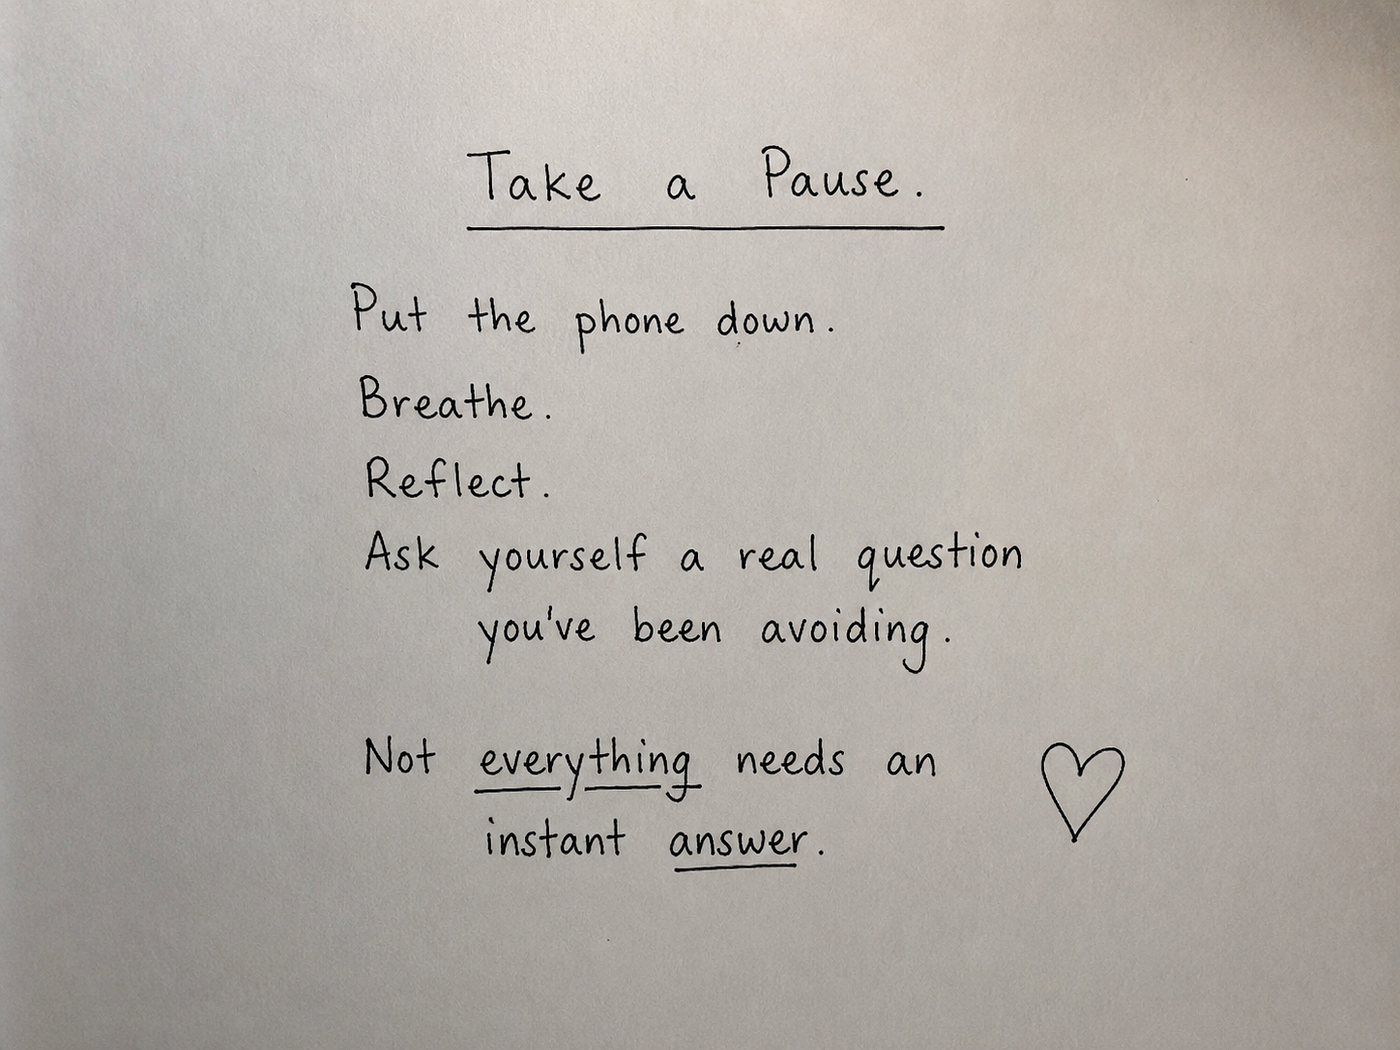 Take a Pause.
Put the phone down.
Breathe.
Reflect.
Ask yourself a real question
you've been avoiding.
Not everything needs an
instant answer.